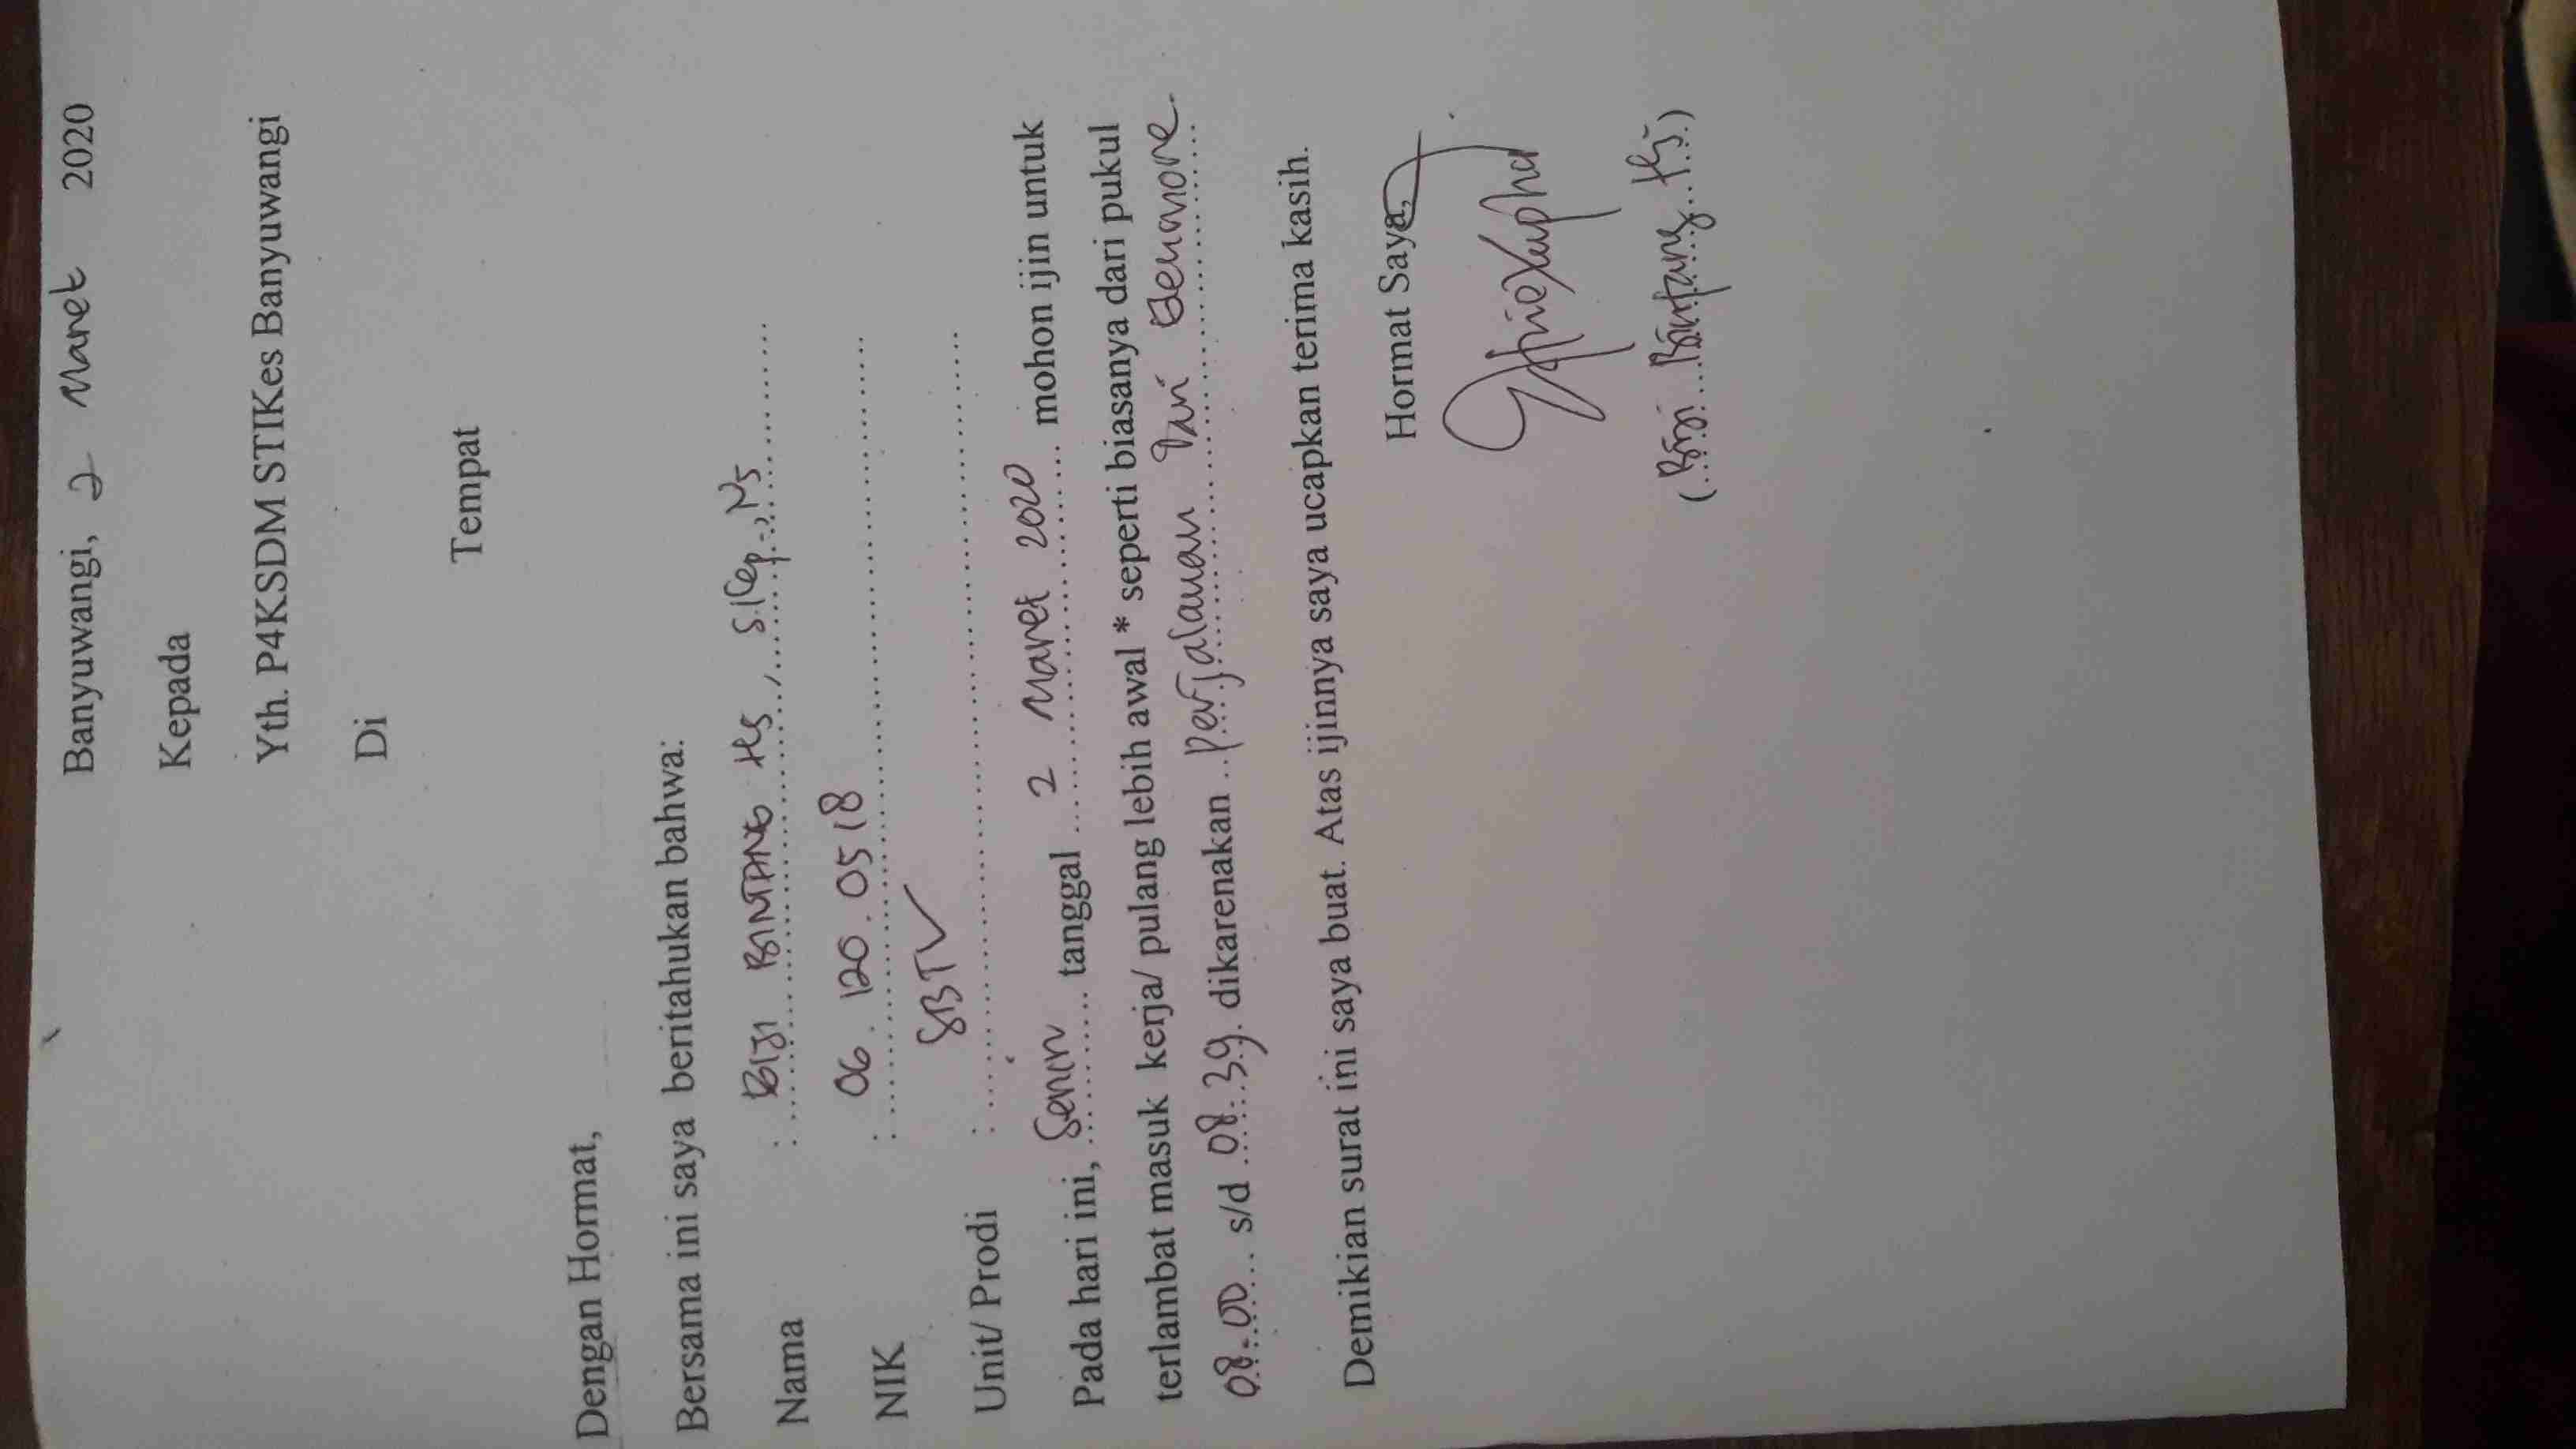 Banyuwangi, 2 Maret 2020
Kepada
Yth. P4KSDM STIKes Banyuwangi
Di
Tempat
Dengan Hormat,
Bersama ini saya beritahukan bahwa:
Nama : BIJI BINTANG HS, S.Kep., Ns
NIK : 06.120.0518
Unit/ Prodi : SBTV
Pada hari ini, Senin tanggal 2 Maret 2020 mohon ijin untuk
terlambat masuk kerja/ pulang lebih awal * seperti biasanya dari pukul
08.00 s/d 08.39. dikarenakan perjalanan dari
Demikian surat ini saya buat. Atas ijinnya saya ucapkan terima kasih.
Hormat Saya,
(Biji Bintang Hs.)